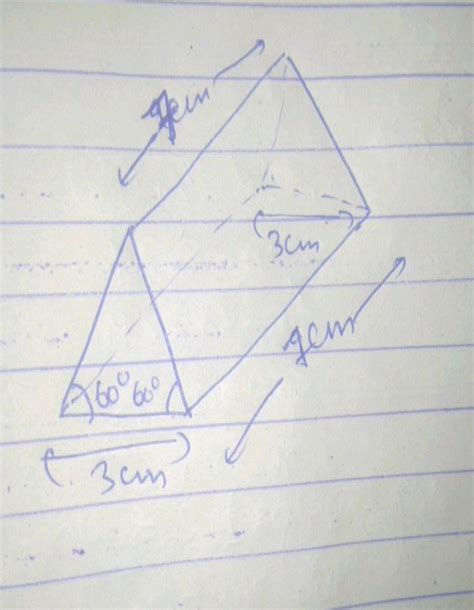 3cm
9cm
60° 60°
3cm